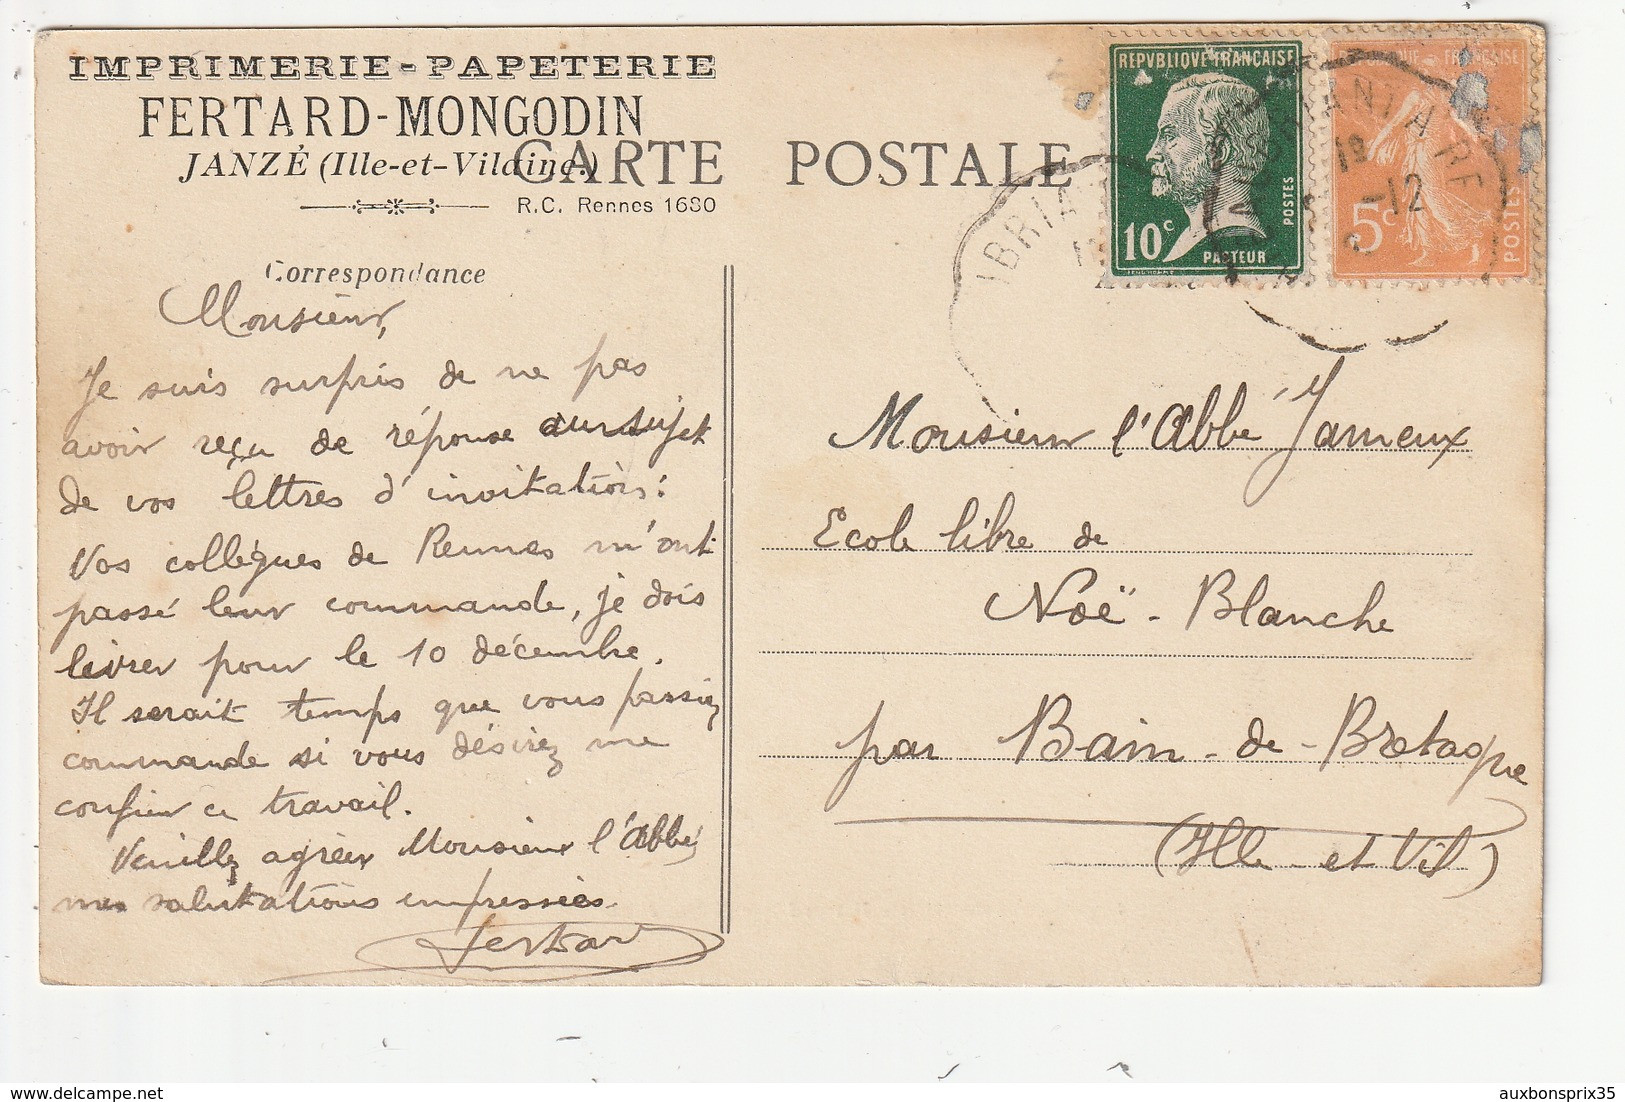 IMPRIMERIE - PAPETERIE
FERTARD-MONGODIN
JANZÉ (Ille-et-Vilaine.)
R.C. Rennes 1680
CARTE POSTALE
REPVBLIQVE FRANÇAISE
10c
POSTES
PASTEUR
FRANÇAISE
5c
POSTES
-12
Correspondance
Monsieur,
Je suis surpris de ne pas
avoir reçu de réponse au sujet
de vos lettres d'invitations:
Vos collègues de Rennes m'ont
passé leur commande, je dois
livrer pour le 10 décembre.
Il serait temps que vous passiez
commande si vous désirez me
confier ce travail.
Veuillez agréer Monsieur l'Abbé
mes salutations empressées.
Fertard
Monsieur l'Abbé Jameux
Ecole libre de
Noë-Blanche
par Bain-de-Bretagne
(Ille et Vil)
delcampe.net
auxbonsprix35